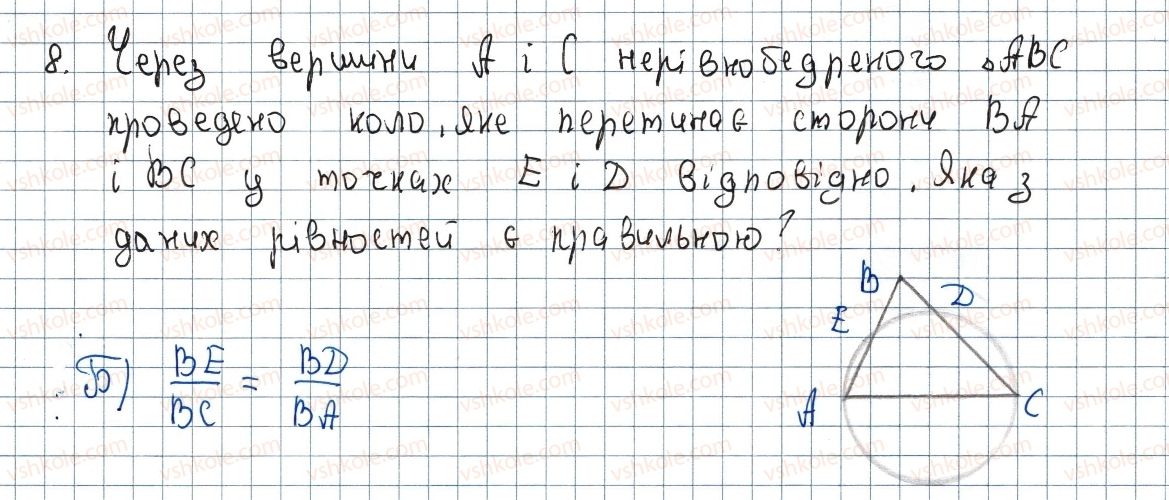 8. Через вершини A і C нерівнобедреного △ABC
проведено коло, яке перетинає сторони BA
і BC у точках E і D відповідно. Яка з
даних рівностей є правильною?
Б) BE/BC = BD/BA
B
D
E
A
C
vshkole.com